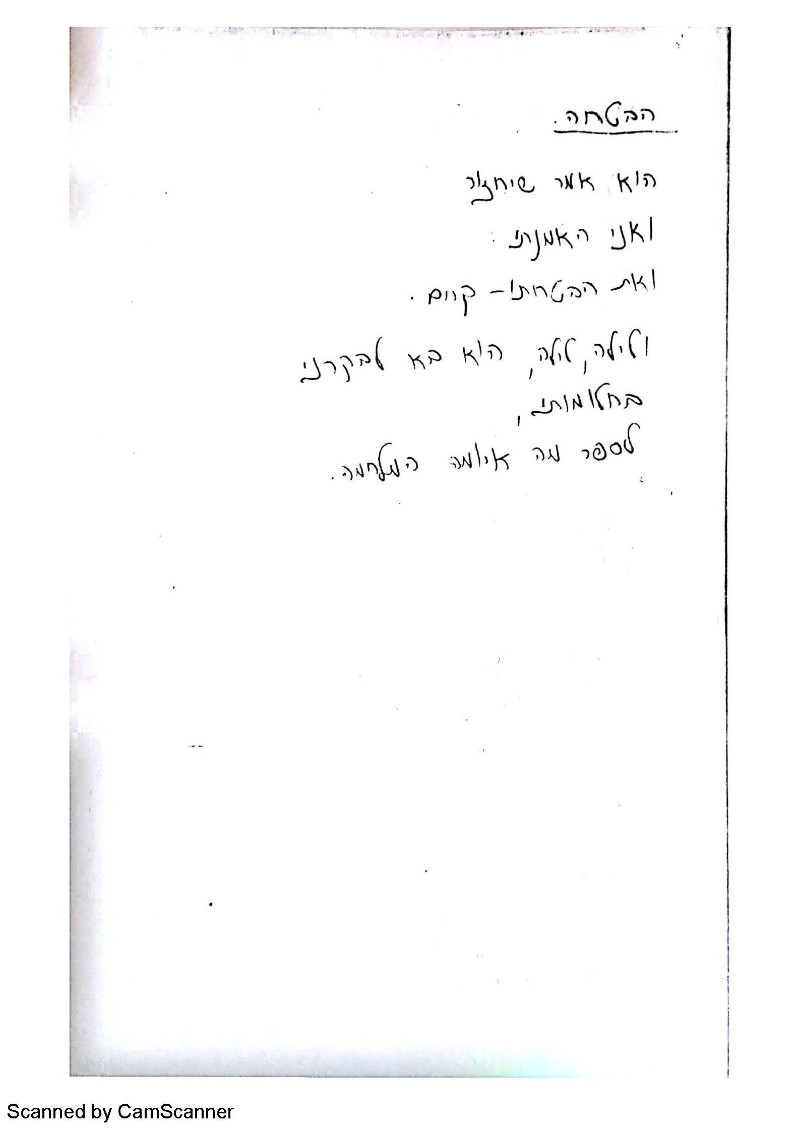 הבטחה.
הוא אמר שיחזור
ואני האמנתי.
ואת הבטחתו - קיים.
ולילה, לילה, הוא בא לבקרני
בחלומותי,
לספר מה איומה המלחמה.
Scanned by CamScanner